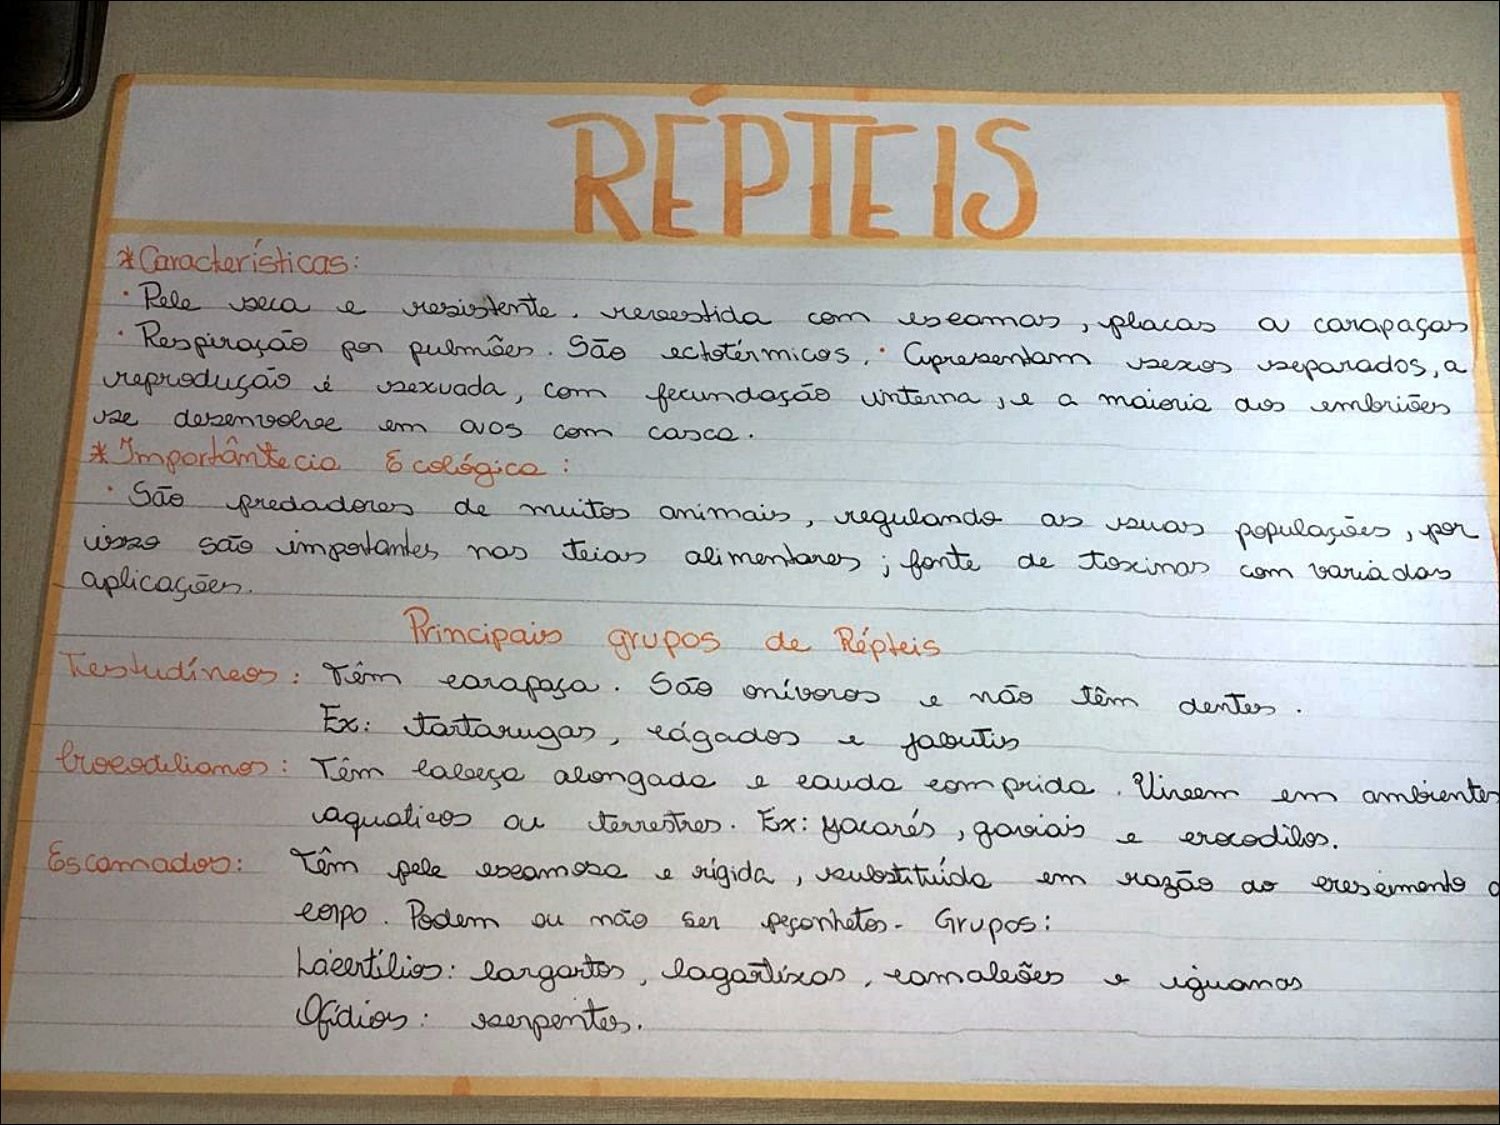 RÉPTEIS
*Características:
· Pele seca e resistente. revestida com escamas, placas a carapaças
· Respiração por pulmões. São ectotérmicos. · Apresentam sexos separados, a
reprodução é sexuada, com fecundação interna, e a maioria dos embriões
se desenvolve em ovos com casca.
*Importântecia Ecológica:
· São predadores de muitos animais, regulando as suas populações, por
isso são importantes nas teias alimentares; fonte de toxinas com variadas
aplicações.
Principais grupos de Répteis
Testudíneos: Têm carapaça. São onívoros e não têm dentes.
Ex: tartarugas, cágados e jabutis
Crocodilianos: Têm cabeça alongada e cauda comprida. Vivem em ambientes
aquaticos ou terrestres. Ex: jacarés, gaviais e crocodilos.
Escamados: Têm pele escamosa e rígida, substituída em razão do crescimento d
corpo. Podem ou não ser peçonhetos- Grupos:
Lacertílios: largartos, lagartixas, camaleões e iguanas
Ofídios: serpentes.